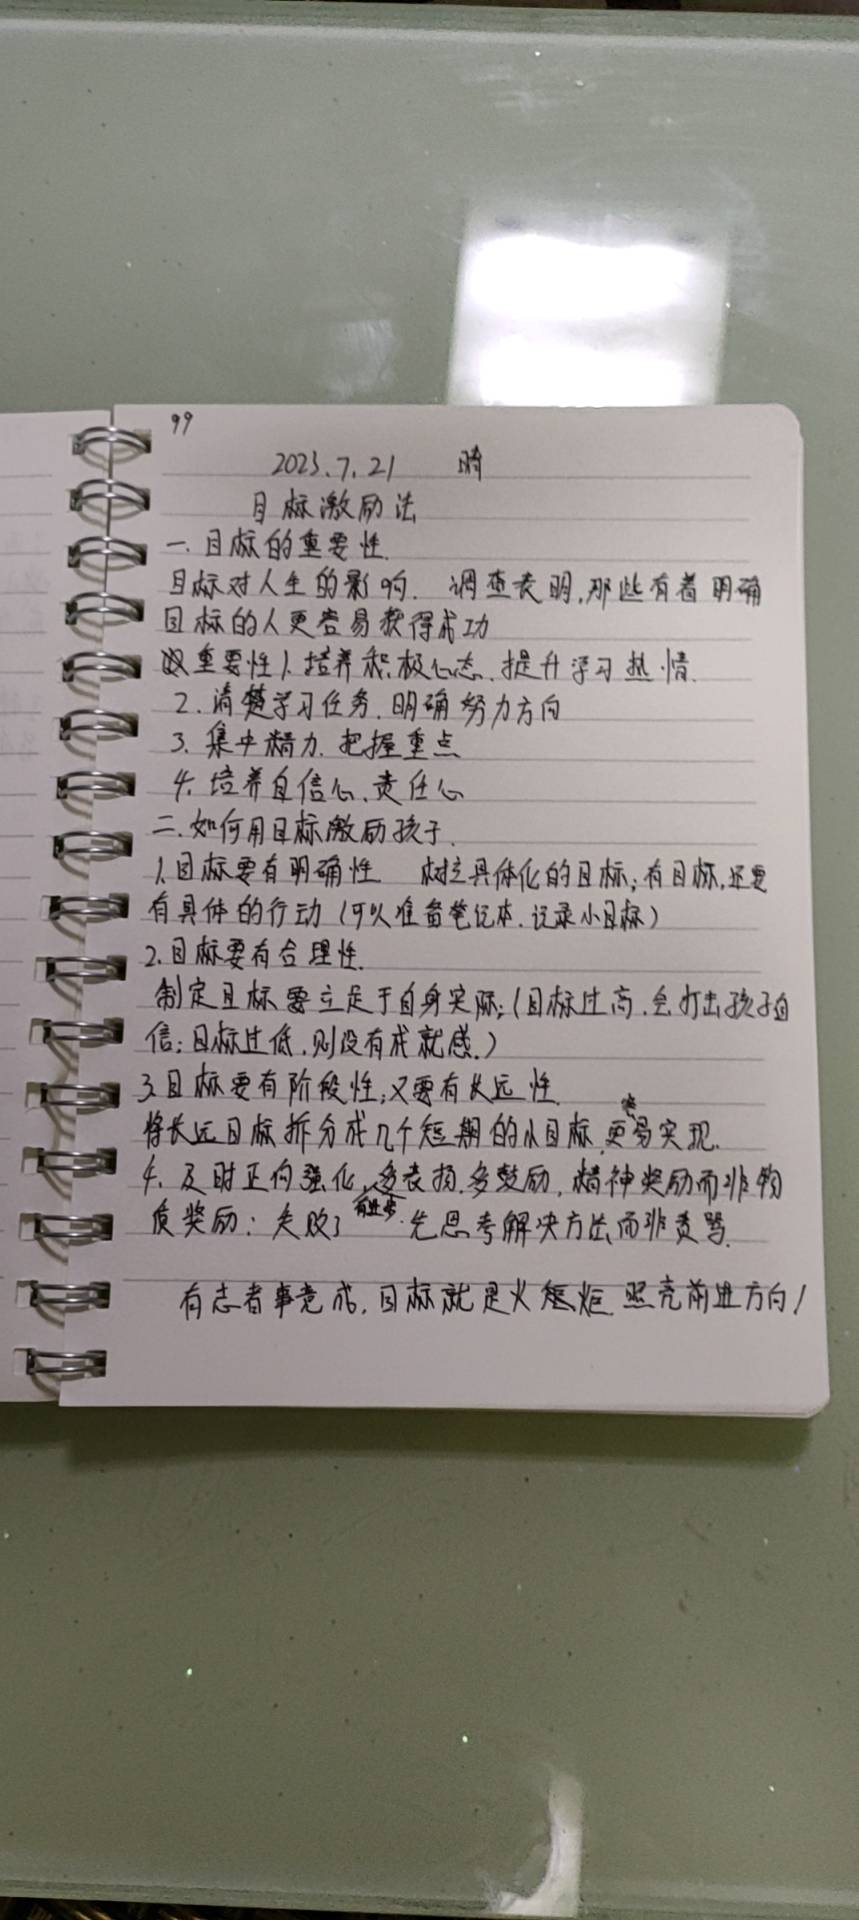 99
2023.7.21 晴
目标激励法
一.目标的重要性.
目标对人生的影响. 调查表明,那些有着明确
目标的人更容易获得成功
重要性1.培养积极心态、提升学习热情.
2.清楚学习任务.明确努力方向
3.集中精力.把握重点
4.培养自信心、责任心
二.如何用目标激励孩子.
1.目标要有明确性 树立具体化的目标;有目标,还要
有具体的行动(可以准备笔记本.记录小目标)
2.目标要有合理性.
制定目标要立足于自身实际;(目标过高.会打击孩子自
信;目标过低.则没有成就感.)
3.目标要有阶段性;又要有长远性.
将长远目标拆分成几个短期的小目标.更易实现.
4.及时正向强化,多表扬.多鼓励,精神奖励而非物
有进步.
质奖励;失败了 先思考解决方法而非责骂.
有志者事竟成,目标就是火炬.照亮前进方向!